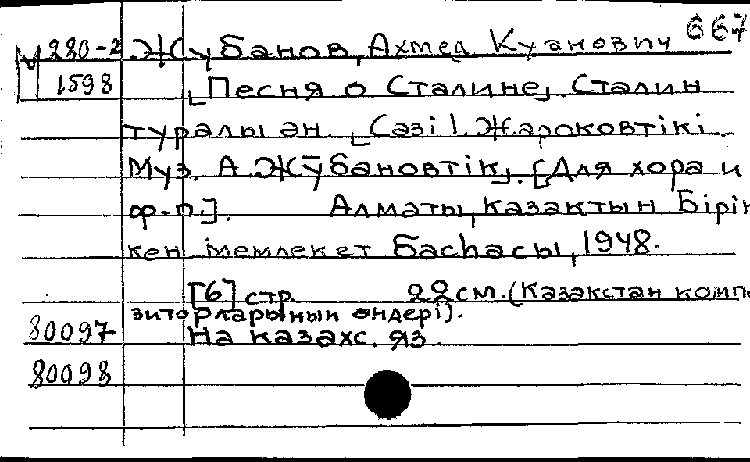 667
М 280-2 Жубанов, Ахмед Куанович
1598 [Песня о Сталине]. Сталин
туралы ән. [Сөзі ! Жароковтікі
Муз. А. Жұбановтікі]. [Для хора и
ф-п.]. Алматы, Казактын Бірік
кен мемлекет Баспасы, 1948.
[6] стр. 22 см. (Казакстан компо
зиторларынын өндері).
80097 На казахс. яз.
80098